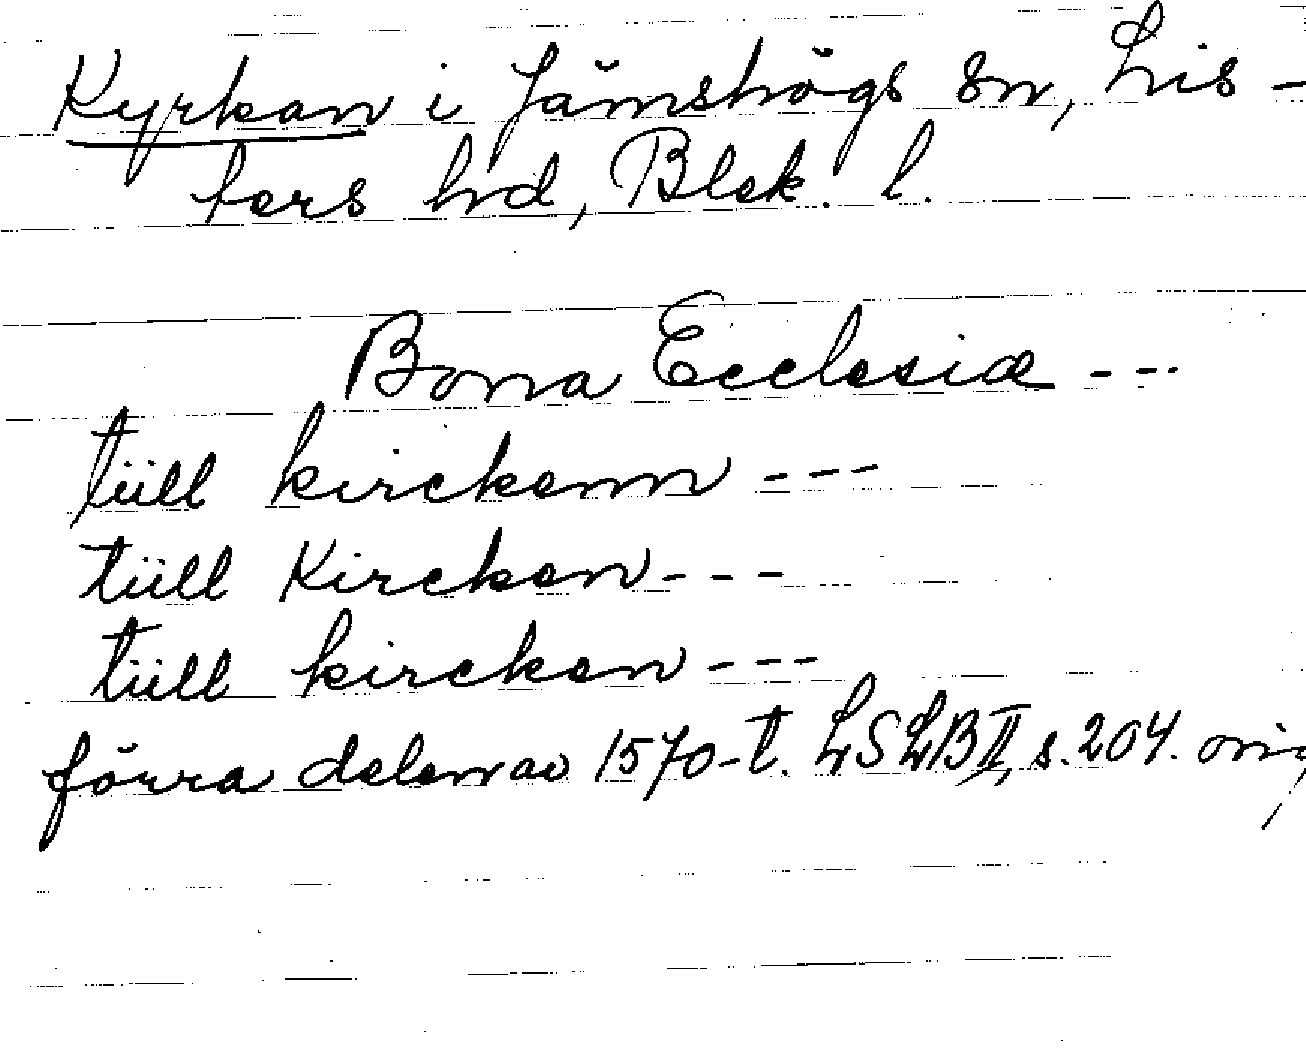 Kyrkan i Jämshögs sn, Lis-
ters hd, Blek. l.
Bona Ecclesiæ ---
tüll kirckenn ---
tüll Kircken ---
tüll kircken ---
förra delen av 1570-t. LSLB II, s. 204. orig,